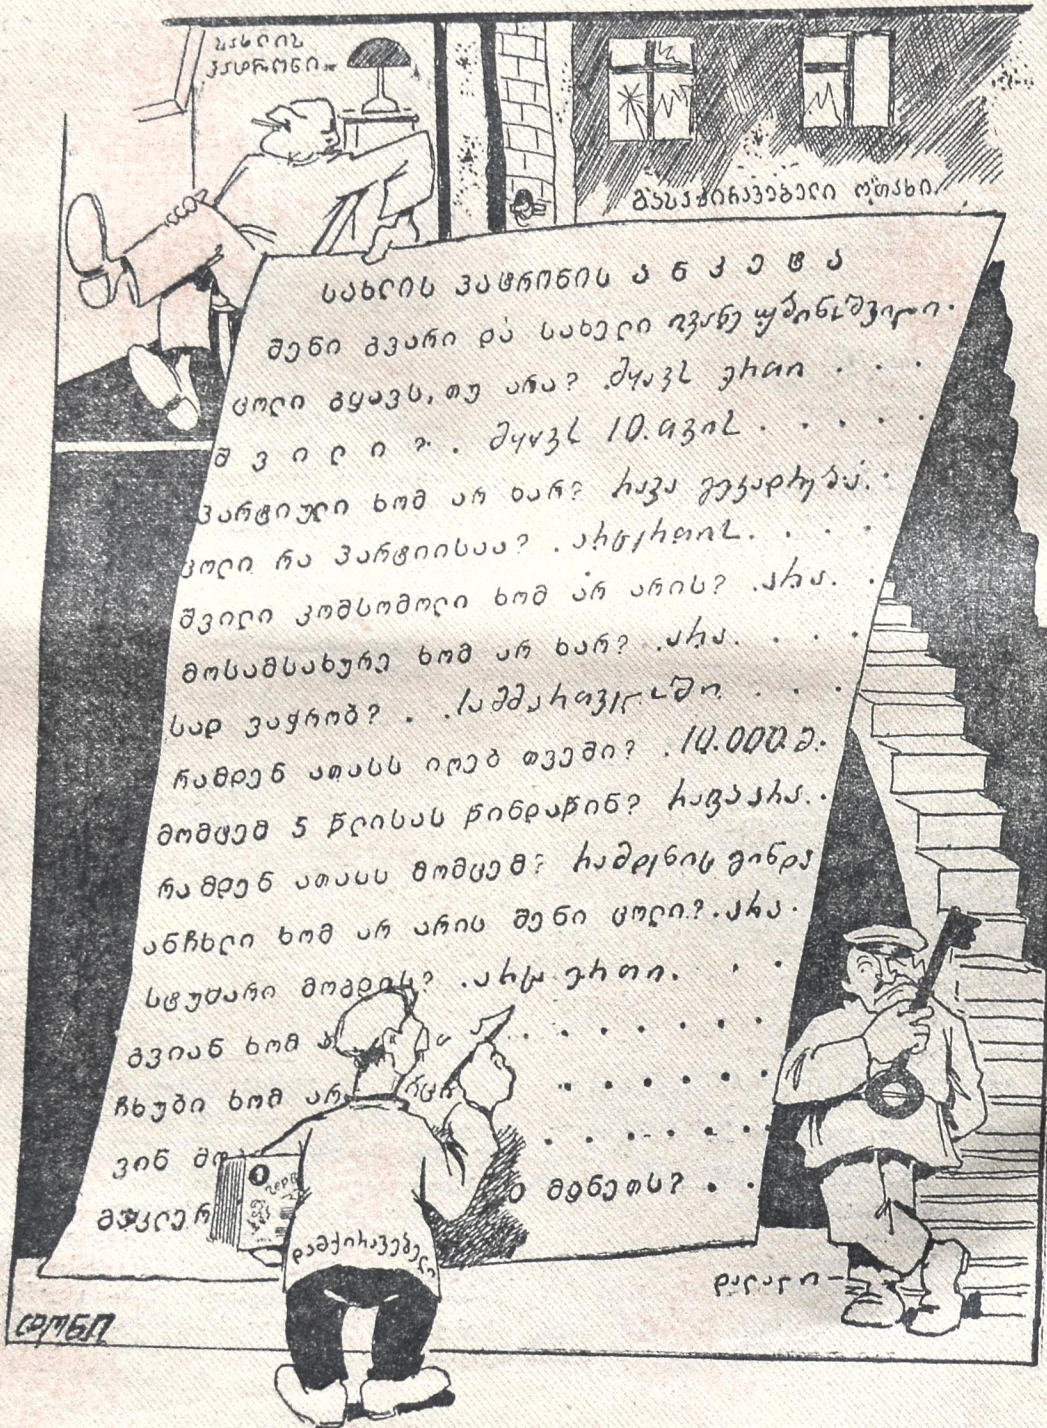 სახლის
პატრონი
გასაქირავებელი ოთახი
სახლის პატრონის ა ნ კ ე ტ ა
შენი გვარი და სახელი ივანე
ცოლი გყავს, თუ არა? .მყავს ერთი . . .
შ ვ ი ლ ი ? . მყავს 10. თვის . . . . .
პარტიული ხომ არ ხარ? რავა გეკადრება. .
ცოლი რა პარტიისაა? . არცერთის. . . .
შვილი კომსომოლი ხომ არ არის? .არა. .
მოსამსახურე ხომ არ ხარ? .არა. . . .
სად ვაჭრობ? . .სამმართველოში . . .
რამდენ ათასს იღებ თვეში? .10.000 მ.
მომცემ 5 წლისას წინდაწინ? რაფა არა. .
რამდენ ათასს მომცემ? რამდენიც გინდა
ანჩხლი ხომ არ არის შენი ცოლი? .არა .
სტუმარი მოგდის? .არც ერთი. . .
გვიან ხომ ა . . . . . . .
ჩხუბი ხომ არ . . . . . .
ვინ მო . . . . . .
მანეთს? . .
დამქირავებელი
დალალი